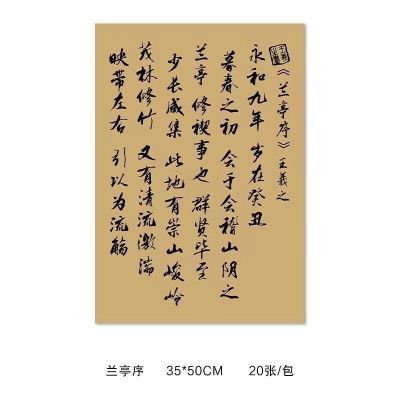 《兰亭序》王羲之
永和九年 岁在癸丑
暮春之初 会于会稽山阴之
兰亭 修禊事也 群贤毕至
少长咸集 此地有崇山峻岭
茂林修竹 又有清流激湍
映带左右 引以为流觞
兰亭序 35*50CM 20张/包